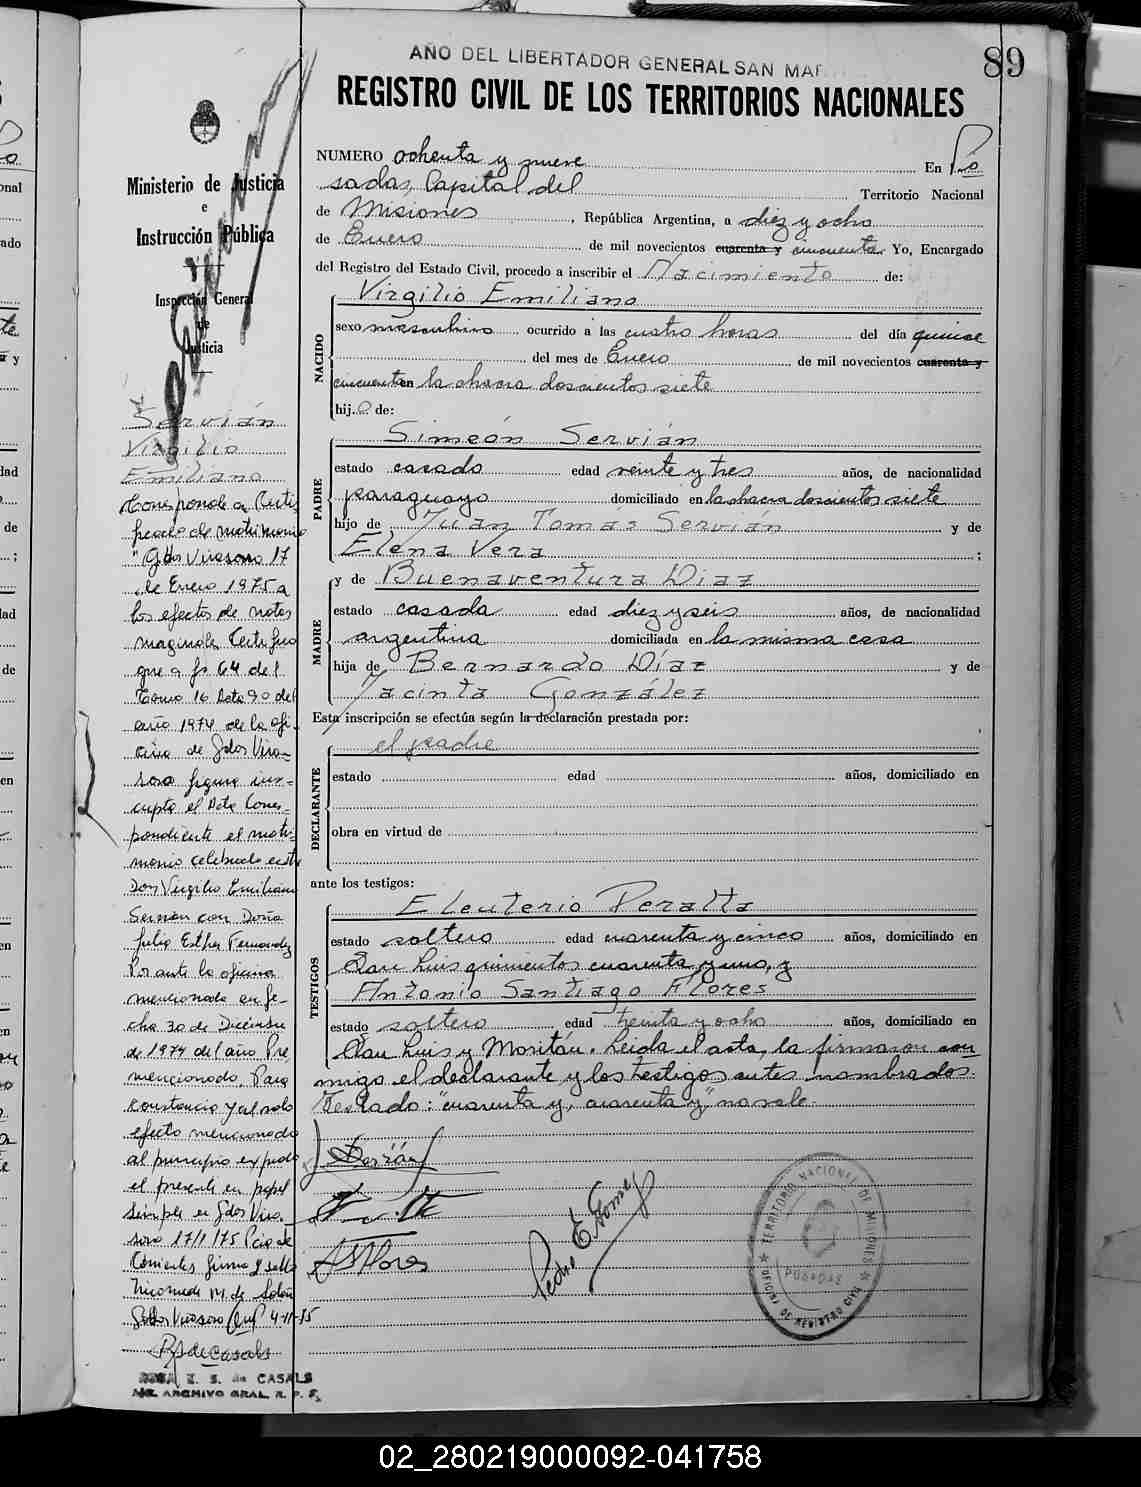 AÑO DEL LIBERTADOR GENERAL SAN MAR
89
REGISTRO CIVIL DE LOS TERRITORIOS NACIONALES
NUMERO ochenta y nueve En Po
sadas, Capital del Territorio Nacional
de Misiones, República Argentina, a diez y ocho
de Enero de mil novecientos cuarenta y cincuenta Yo, Encargado
del Registro del Estado Civil, procedo a inscribir el Nacimiento de:
NACIDO
Virgilio Emiliano
sexo masculino ocurrido a las cuatro horas del día quince
del mes de Enero de mil novecientos cuarenta y
cincuenta en la chacra doscientos siete
hijo de:
PADRE
Simeón Servián
estado casado edad veinte y tres años, de nacionalidad
paraguayo domiciliado en la chacra doscientos siete
hijo de Juan Tomás Servián y de
Elena Vera ;
MADRE
y de Buenaventura Diaz
estado casada edad diez y seis años, de nacionalidad
argentina domiciliada en la misma casa
hija de Bernardo Díaz y de
Jacinta González
Esta inscripción se efectúa según la declaración prestada por:
DECLARANTE
el padre
estado edad años, domiciliado en
obra en virtud de
ante los testigos:
TESTIGOS
Eleuterio Peralta
estado soltero edad cuarenta y cinco años, domiciliado en
San Luis quinientos cuarenta y uno, y
Antonio Santiago Flores
estado soltero edad treinta y ocho años, domiciliado en
San Luis y Moritán. Leida el acta, la firmaron con
migo el declarante y los testigos antes nombrados.
Testado: "cuarenta y, cuarenta y," no vale.
ASFlores
Pedro E. Gomez
TERRITORIO NACIONAL DE MISIONES
POSADAS
OFICINA DE REGISTRO CIVIL
Ministerio de Justicia
e
Instrucción Pública
Inspección General
de
Justicia
Servián
Virgilio
Emiliano
Corresponde a Certi
ficado de matrimonio
"Gdor Virasoro 17
de Enero 1975 a
los efectos de notas
marginales Certifico
que a fs 64 del
Tomo 16 Acta 90 del
año 1974 de la ofi
cina de Gdor Vira-
soro figura ins-
cripta el Acta Corres-
pondiente al matri-
monio celebrado entre
Don Virgilio Emiliano
Servian con Doña
Julia Esther Fernandez
Por ante la oficina
mencionada en fe-
cha 30 de Diciembre
de 1974 del año Pre
mencionado. Para
constancia y al solo
efecto mencionado
al principio expido
el presente en papel
simple en Gdor Vira-
soro 17/1/75 Pcia de
Corrientes firma y sello
M. de
Gdor Virasoro 4-11-75
de Casals
ROSA E. S. de CASALS
ARCHIVO GRAL. R. P. F.
02_280219000092-041758